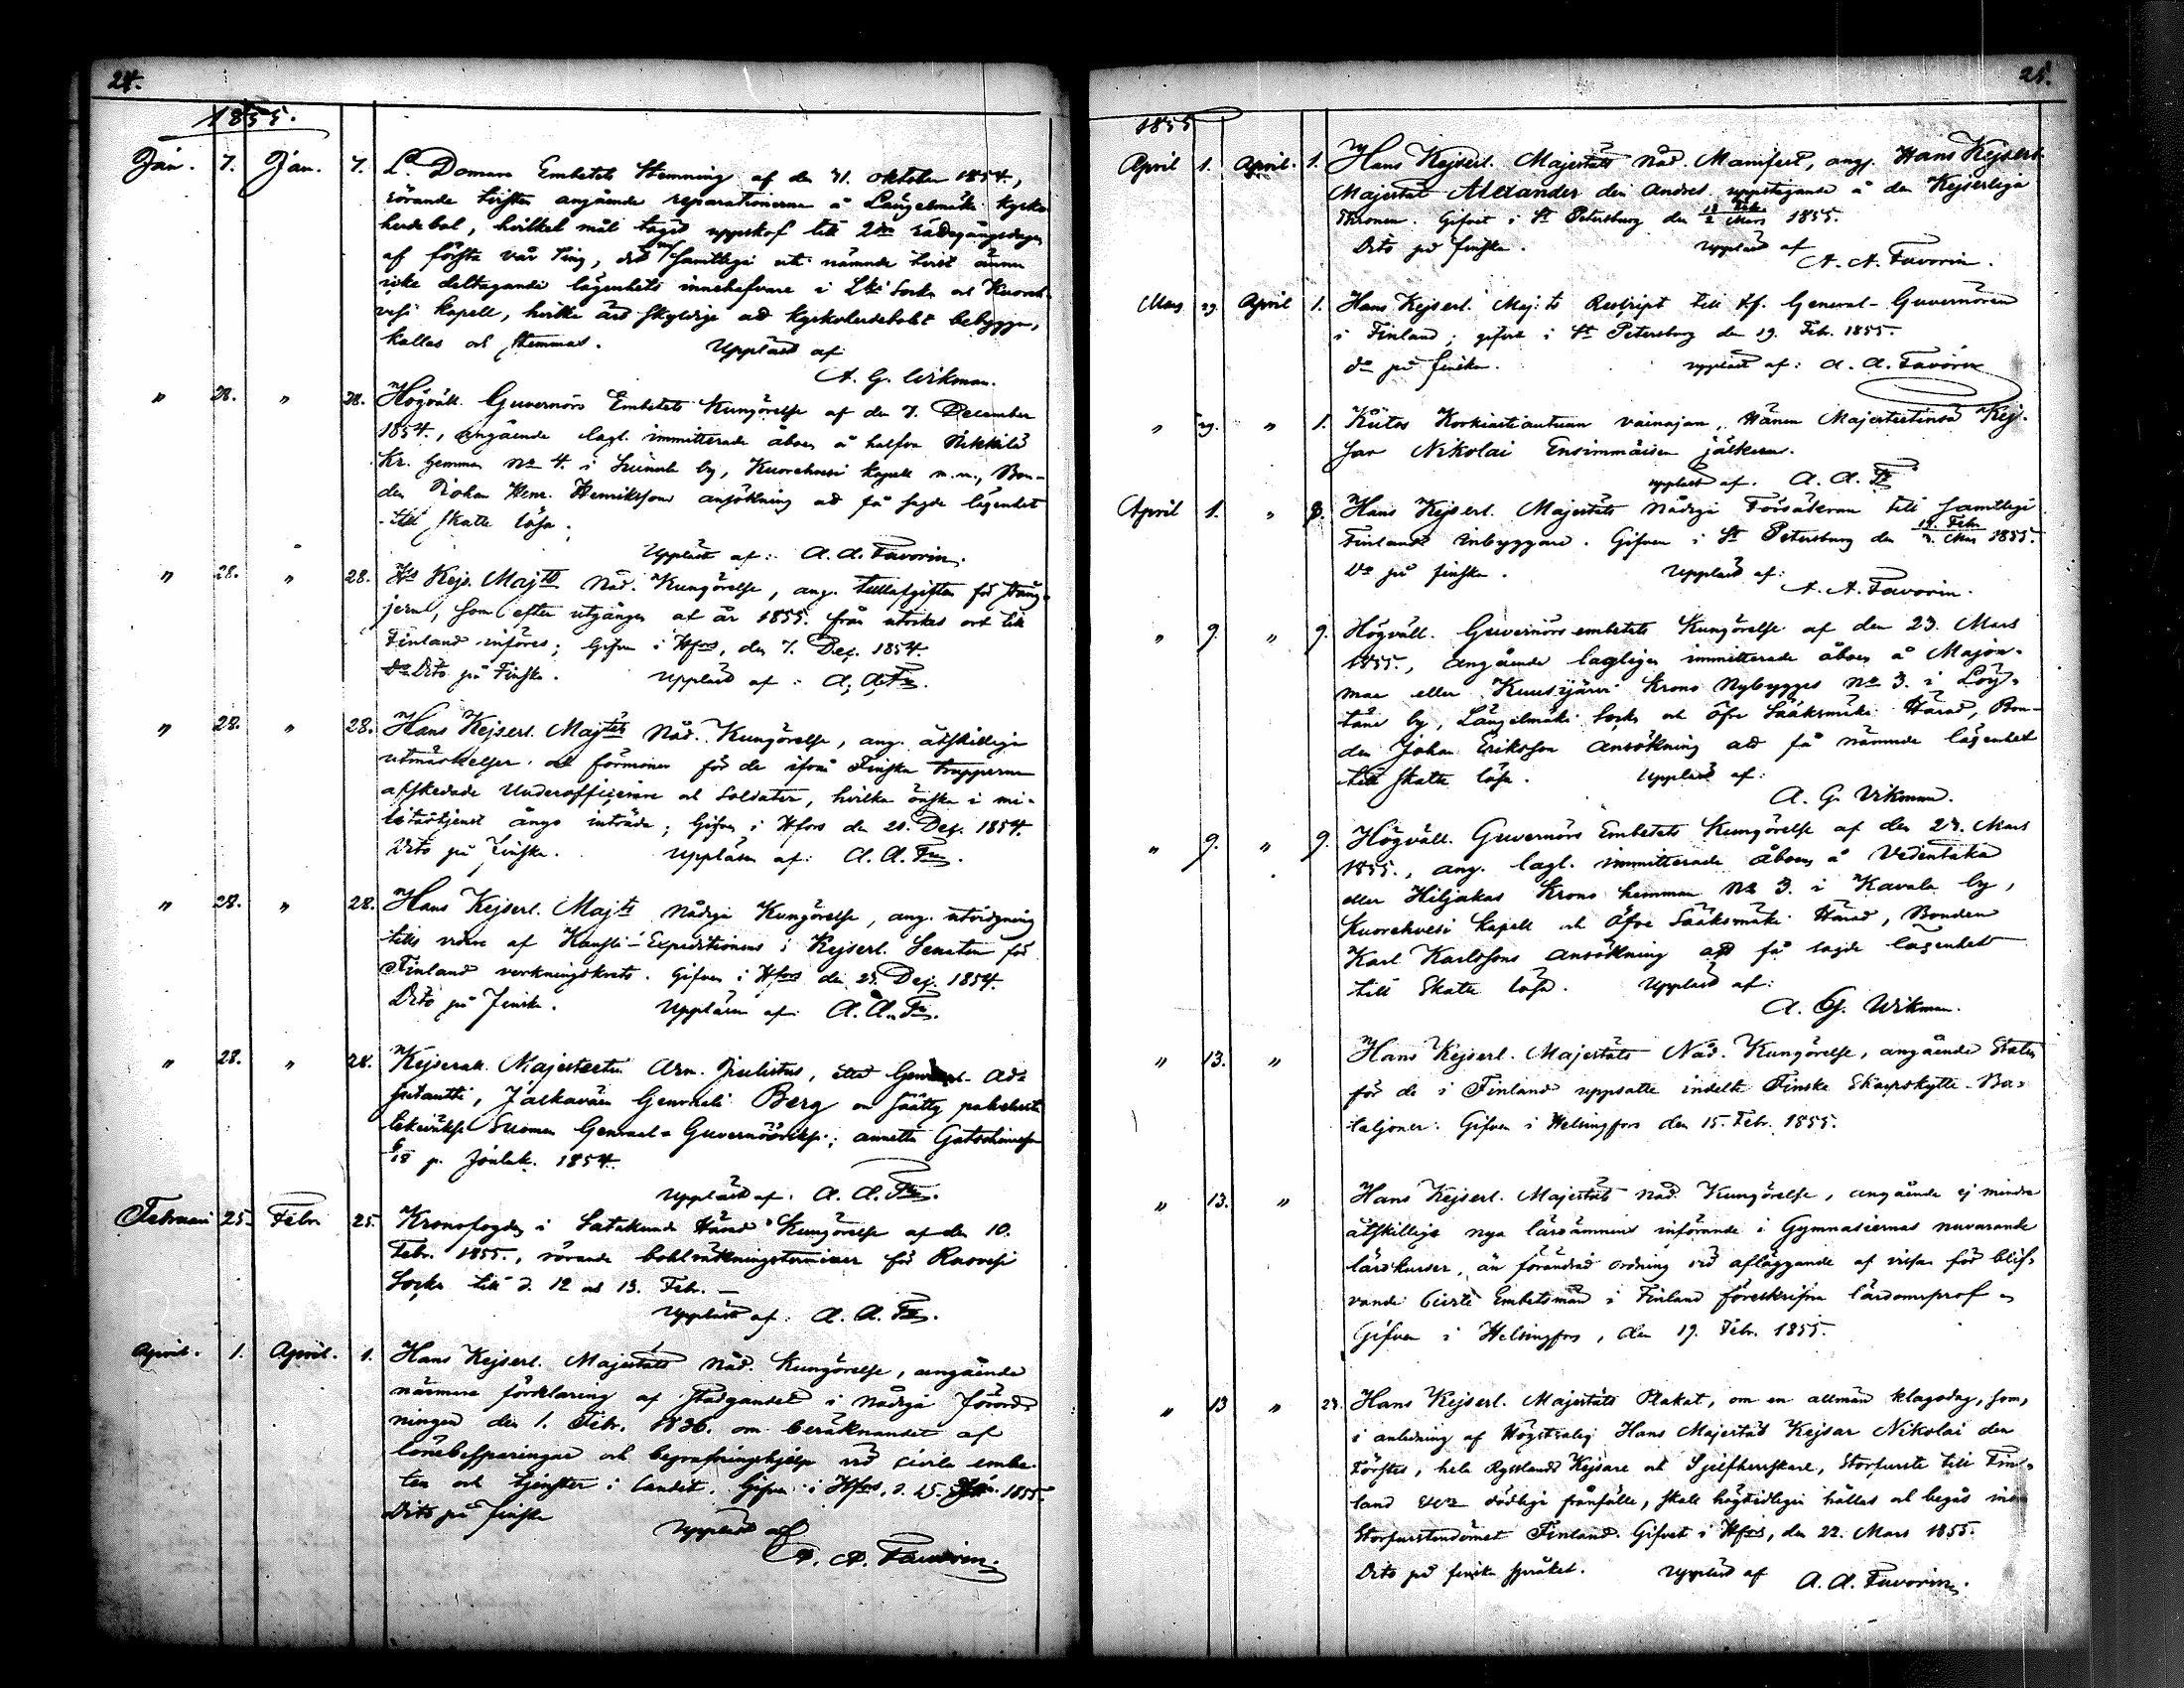 24.
1855.
Jan. 7. Jan. 7. Ld. Domare Embetets Stemning af den 31. oktober 1854.,
rörande tvisten angående reparationerna å Längelmäki kyrko-
herdebol, hvilket mål tagit uppskof till 2dra rättegångsdagen
af första vår Ting, då samtlige uti nämnde tvist ännu
icke deltagande lägenhets innehafvare i Lki Socken och Kuoreh-
vesi Kapell, hvilka äro skyldige att kyrkoherdebolet bebygga,
kallas och stemmas. Uppläst af
A. G. Wikman.
" 28. " 28. Högväll. Guvernörs Embetets Kungörelse af den 7. December
1854., angående lagl. immitterade åboen å halfva Nikkilä
Kr. hemman No 4. i Suinula by, Kuorehvesi Kapell m.m., Bon-
den Johan Henr. Henrikssons ansökning att få sagde lägenhet
till skatte lösa.
Uppläst af: A. A. Favorin.
" 28. " 28. Hs Kejs. Majts Nåd. Kungörelse, ang. tullafgiften för stång-
jern, som efter utgången af år 1855. från utrikes ort till
Finland införes; Gifven i Hfors, den 7. Dec. 1854.
Dito på Finska. Uppläst af: A. A. Fn.
" 28. " 28. Hans Kejserl. Majtets Nåd. Kungörelse, ang. åtskillige
utmärkelser och förmoner för de ifrån Finska trupperna
afskedade Underofficerare och Soldater, hvilka önska i mi-
litärtjenst ånyo inträda; Gifven i Hfors den 20. Dec. 1854.
Dito på Finska. Uppläsen af: A. A. Fn.
" 28. " 28. Hans Kejserl. Majts Nådiga Kungörelse, ang. utvidgning
tills vidare af Kansli-Expeditionens i Kejserl. Senaten för
Finland verkningskrets. Gifven i Hfors den 23. Dec. 1854.
Dito på Finska. Uppläsen af: A. A. Fn.
" 28. " 28. Kejserall. Majesteetin Arm. Julistus, että General-Ad-
jutantti, Jalkaväen Generali Berg on säätty palveluste
tekeväksi Suomen General-Guvernöriksi; annettu Gatschinassa
6/18 p. Jouluk. 1854.
Uppläst af. A. A. Fn.
Februari 25. Febr. 25. Kronofogden i Satakunda Härad Kungörelse af den 10.
Febr. 1855., rörande bokluäkningsterminer för Ruovesi
Socken till d. 12 och 13. Febr. –
Uppläst af: A. A. Fn.
April. 1. April. 1. Hans Kejserl. Majestäts Nåd. Kungörelse, angående
närmare förklaring af Stadgandet i nådiga Förord-
ningen den 1. Febr. 1836. om beräknandet af
lönebesparingar och begrafningshjelp vid civila embe-
ten och tjenster i landet. Gifven i Hfors, d. 25. Jan. 1855.
Dito på finska
Uppläst af
A. A. Favorin.
25.
1855
April 1. April. 1. Hans Kejserl. Majestäts Nåd. Manifest, ang. Hans Kejserl.
Majestät Alexander den Andres uppstigande å den Kejserliga
Thronen. Gifvet i St Petersburg den 18 Feb./2 Mars 1855.
Dito på finska. Uppläst af
A. A. Favorin.
Mars 29. April 1. Hans Kejserl. Maj:ts Reskript till tf. General-Guvernören
i Finland; gifvet i St Petersburg den 19. Feb. 1855.
do på finska. uppläst af: A. A. Favorin
" 29. " 1. Kiitos Korkiastiautuun vainajan, Hänen Majesteetinsä Kej-
sar Nikolai Ensimmäisen jälkeen.
uppläst af. A. A. Fn
April 1. " 8. Hans Kejserl. Majestäts Nådiga Försäkran till samtlige
Finlands inbyggare. Gifven i St Petersburg den 19. Febr./3. Mars 1855.
Do på finska. Uppläst af:
A. A. Favorin.
" 9. " 9. Högväll. Guvernörs embetets Kungörelse af den 23. Mars
1855., angående lagligen immitterade åboen å Majan-
maa eller Kuusijärvi Krono Nybygges No 3. i Löy-
täne by, Längelmäki Socken och öfre Sääksmäki Härad, Bon-
den Johan Eriksson ansökning att få nämnde lägenhet
till skatte lösa. Uppläst af:
A. G. Vikman.
" 9. " 9. Högväll. Guvernörs Embetets Kungörelse af den 27. Mars
1855., ang. lagl. immitterade åboen å Vedentaka
eller Hiljakas Krono hemman No 3. i Kavala by,
Kuorehvesi Kapell och Öfre Sääksmäki Härad, Bonden
Karl Karlssons ansökning att få sagde lägenhet
till Skatte lösa. Uppläst af:
A. G. Wikman.
" 13. " Hans Kejserl. Majestäts Nåd. Kungörelse, angående Staten
för de i Finland uppsatte indelta Finske Skarpskytte-Ba-
taljoner. Gifven i Helsingfors den 15. Febr. 1855.
" 13. " Hans Kejserl. Majestäts Nåd. Kungörelse, angående ej mindre
åtskillige nya läroämnens införande i Gymnasiernas nuvarande
lärokurser, än förändrad ordning vid afläggande af vissa för blif-
vande Civile Embetsmän i Finland föreskrifna lärdomsprof.
Gifven i Helsingfors, den 19. Febr. 1855.
" 13 " 23. Hans Kejserl. Majestäts Plakat, om en allmän klagodag, som,
i anledning af Högtsalig Hans Majestät Kejsar Nikolai den
Förstes, hela Rysslands Kejsare och Sjelfherrskare, Storfurste till Fin-
land etc. dödliga frånfälle, skall högtidligen hållas och begås inom
Storfurstendömet Finland. Gifvet i Hfors, den 22. Mars 1855.
Dito på finska språket. Uppläst af A. A. Favorin.